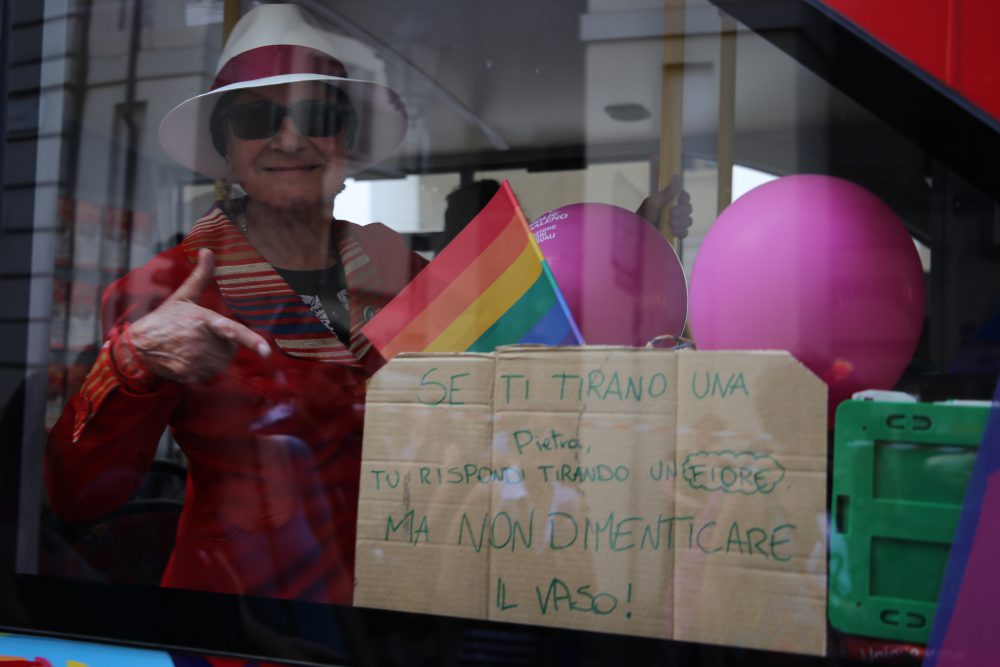 SE TI TIRANO UNA
Pietra,
TU RISPONDI TIRANDO UN FIORE.
MA NON DIMENTICARE
IL VASO!